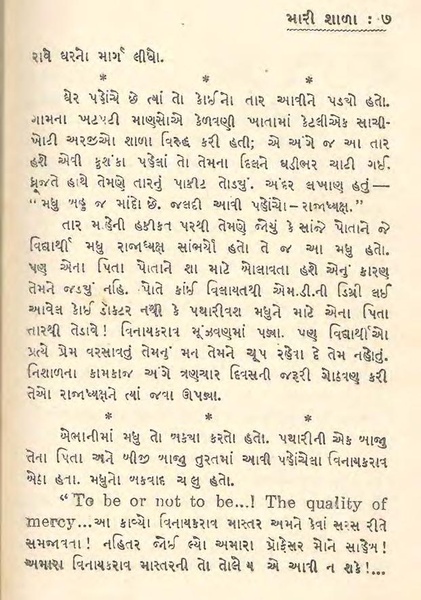 મારી શાળા : ૭
રાવે ઘરનો માર્ગ લીધો.
* * *
ઘેર પહોંચે છે ત્યાં તો કોઈનો તાર આવીને પડયો હતો.
ગામના ખટપટી માણસોએ કેળવણી ખાતામાં કેટલીએક સાચી-
ખોટી અરજીઓ શાળા વિરુદ્ધ કરી હતી; એ અંગે જ આ તાર
હશે એવી કુશંકા પહેલાં તો તેમના દિલને ઘડીભર ચાટી ગઈ.
ધ્રૂજતે હાથે તેમણે તારનું પાકીટ તોડયું. અંદર લખાણ હતું—
“મધુ બહુ જ માંદો છે. જલદી આવી પહોંચો– રાજાધ્યક્ષ.”
તાર માંહેની હકીકત પરથી તેમણે જોયું કે સાંજે પોતાને જે
વિદ્યાર્થી મધુ રાજાધ્યક્ષ સાંભર્યો હતો તે જ આ મધુ હતો.
પણ એના પિતા પોતાને શા માટે બોલાવતા હશે એનું કારણ
તેમને જડયું નહિ. પોતે કાંઈ વિલાયતથી એમ.ડી.ની ડિગ્રી લઈ
આવેલ કોઈ ડૉક્ટર નથી કે પથારીવશ મધુને માટે એના પિતા
તારથી તેડાવે! વિનાયકરાવ મૂંઝવણમાં પડ્યા. પણ વિદ્યાર્થીઓ
પ્રત્યે પ્રેમ વરસાવતું તેમનું મન તેમને ચૂપ રહેવા દે તેમ નહોતું.
નિશાળના કામકાજ અંગે ત્રણચાર દિવસની જરૂરી ગોઠવણ કરી
તેઓ રાજાધ્યક્ષને ત્યાં જવા ઊપડ્યા.
* * *
બેભાનીમાં મધુ તો બકયા કરતો હતો. પથારીની એક બાજુ
તેના પિતા અને બીજી બાજુ તુરતમાં આવી પહોંચેલા વિનાયકરાવ
બેઠા હતા. મધુનો બકવાદ ચાલુ હતો.
“To be or not to be...! The quality of
mercy...આ કાવ્યો વિનાયકરાવ માસ્તર અમને કેવાં સરસ રીતે
સમજાવતા! નહિતર જોઈ લ્યો અમારા પ્રોફેસર મોને સાહેબ!
અમારા વિનાયકરાવ માસ્તરની તો તોલેય એ આવી ન શકે!...